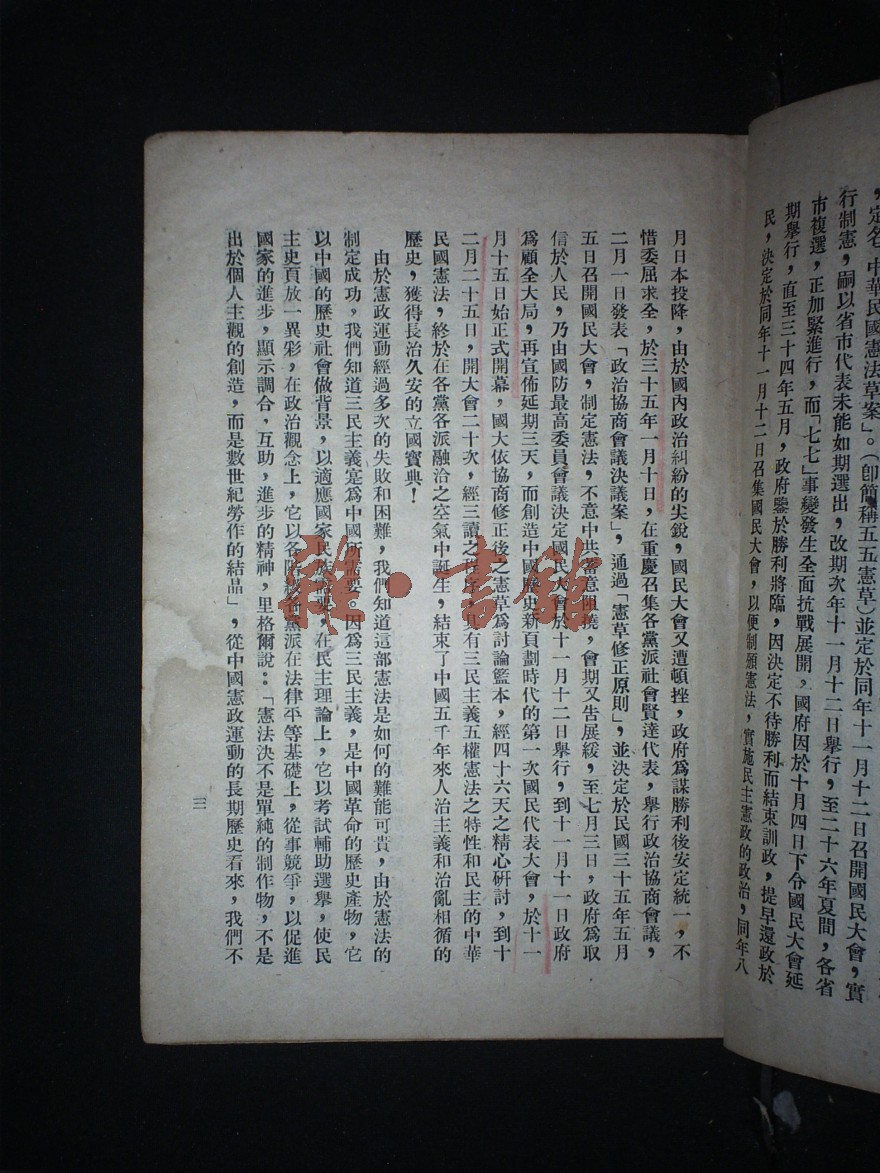 ，定名「中華民國憲法草案」。（卽簡稱五五憲草）並定於同年十一月十二日召開國民大會，實
行制憲，嗣以省市代表未能如期選出，改期次年十一月十二日舉行，至二十六年夏間，各省
市複選，正加緊進行，而「七七」事變發生全面抗戰展開，國府因於十月四日下令國民大會延
期舉行，直至三十四年五月，政府鑒於勝利將臨，因決定不待勝利而結束訓政，提早還政於
民，決定於同年十一月十二日召集國民大會，以便制頒憲法，實施民主憲政的政治，同年八
月日本投降，由於國內政治糾紛的尖銳，國民大會又遭頓挫，政府爲謀勝利後安定統一，不
惜委屈求全，於三十五年一月十日，在重慶召集各黨派社會賢達代表，舉行政治協商會議，
二月一日發表「政治協商會議決議案」，通過「憲草修正原則」，並決定於民國三十五年五月
五日召開國民大會，制定憲法，不意中共蓄意阻撓，會期又告展緩，至七月三日，政府爲取
信於人民，乃由國防最高委員會議決定國民大會於十一月十二日舉行，到十一月十一日政府
爲顧全大局，再宣佈延期三天，而創造中國歷史新頁劃時代的第一次國民代表大會，於十一
月十五日始正式開幕，國大依協商修正後之憲草爲討論藍本，經四十六天之精心研討，到十
二月二十五日，開大會二十次，經三讀之程序，具有三民主義五權憲法之特性和民主的中華
民國憲法，終於在各黨各派融洽之空氣中誕生，結束了中國五千年來人治主義和治亂相循的
歷史，獲得長治久安的立國寶典！
由於憲政運動經過多次的失敗和困難，我們知道這部憲法是如何的難能可貴，由於憲法的
制定成功，我們知道三民主義寔爲中國所需要。因爲三民主義，是中國革命的歷史產物，它
以中國的歷史社會做背景，以適應國家民族需要，在民主理論上，它以考試輔助選舉，使民
主史頁放一異彩，在政治觀念上，它以各階級各黨派在法律平等基礎上，從事競爭，以促進
國家的進步，顯示調合，互助，進步的精神，里格爾說：「憲法決不是單純的制作物，不是
出於個人主觀的創造，而是數世紀勞作的結晶」，從中國憲政運動的長期歷史看來，我們不
三